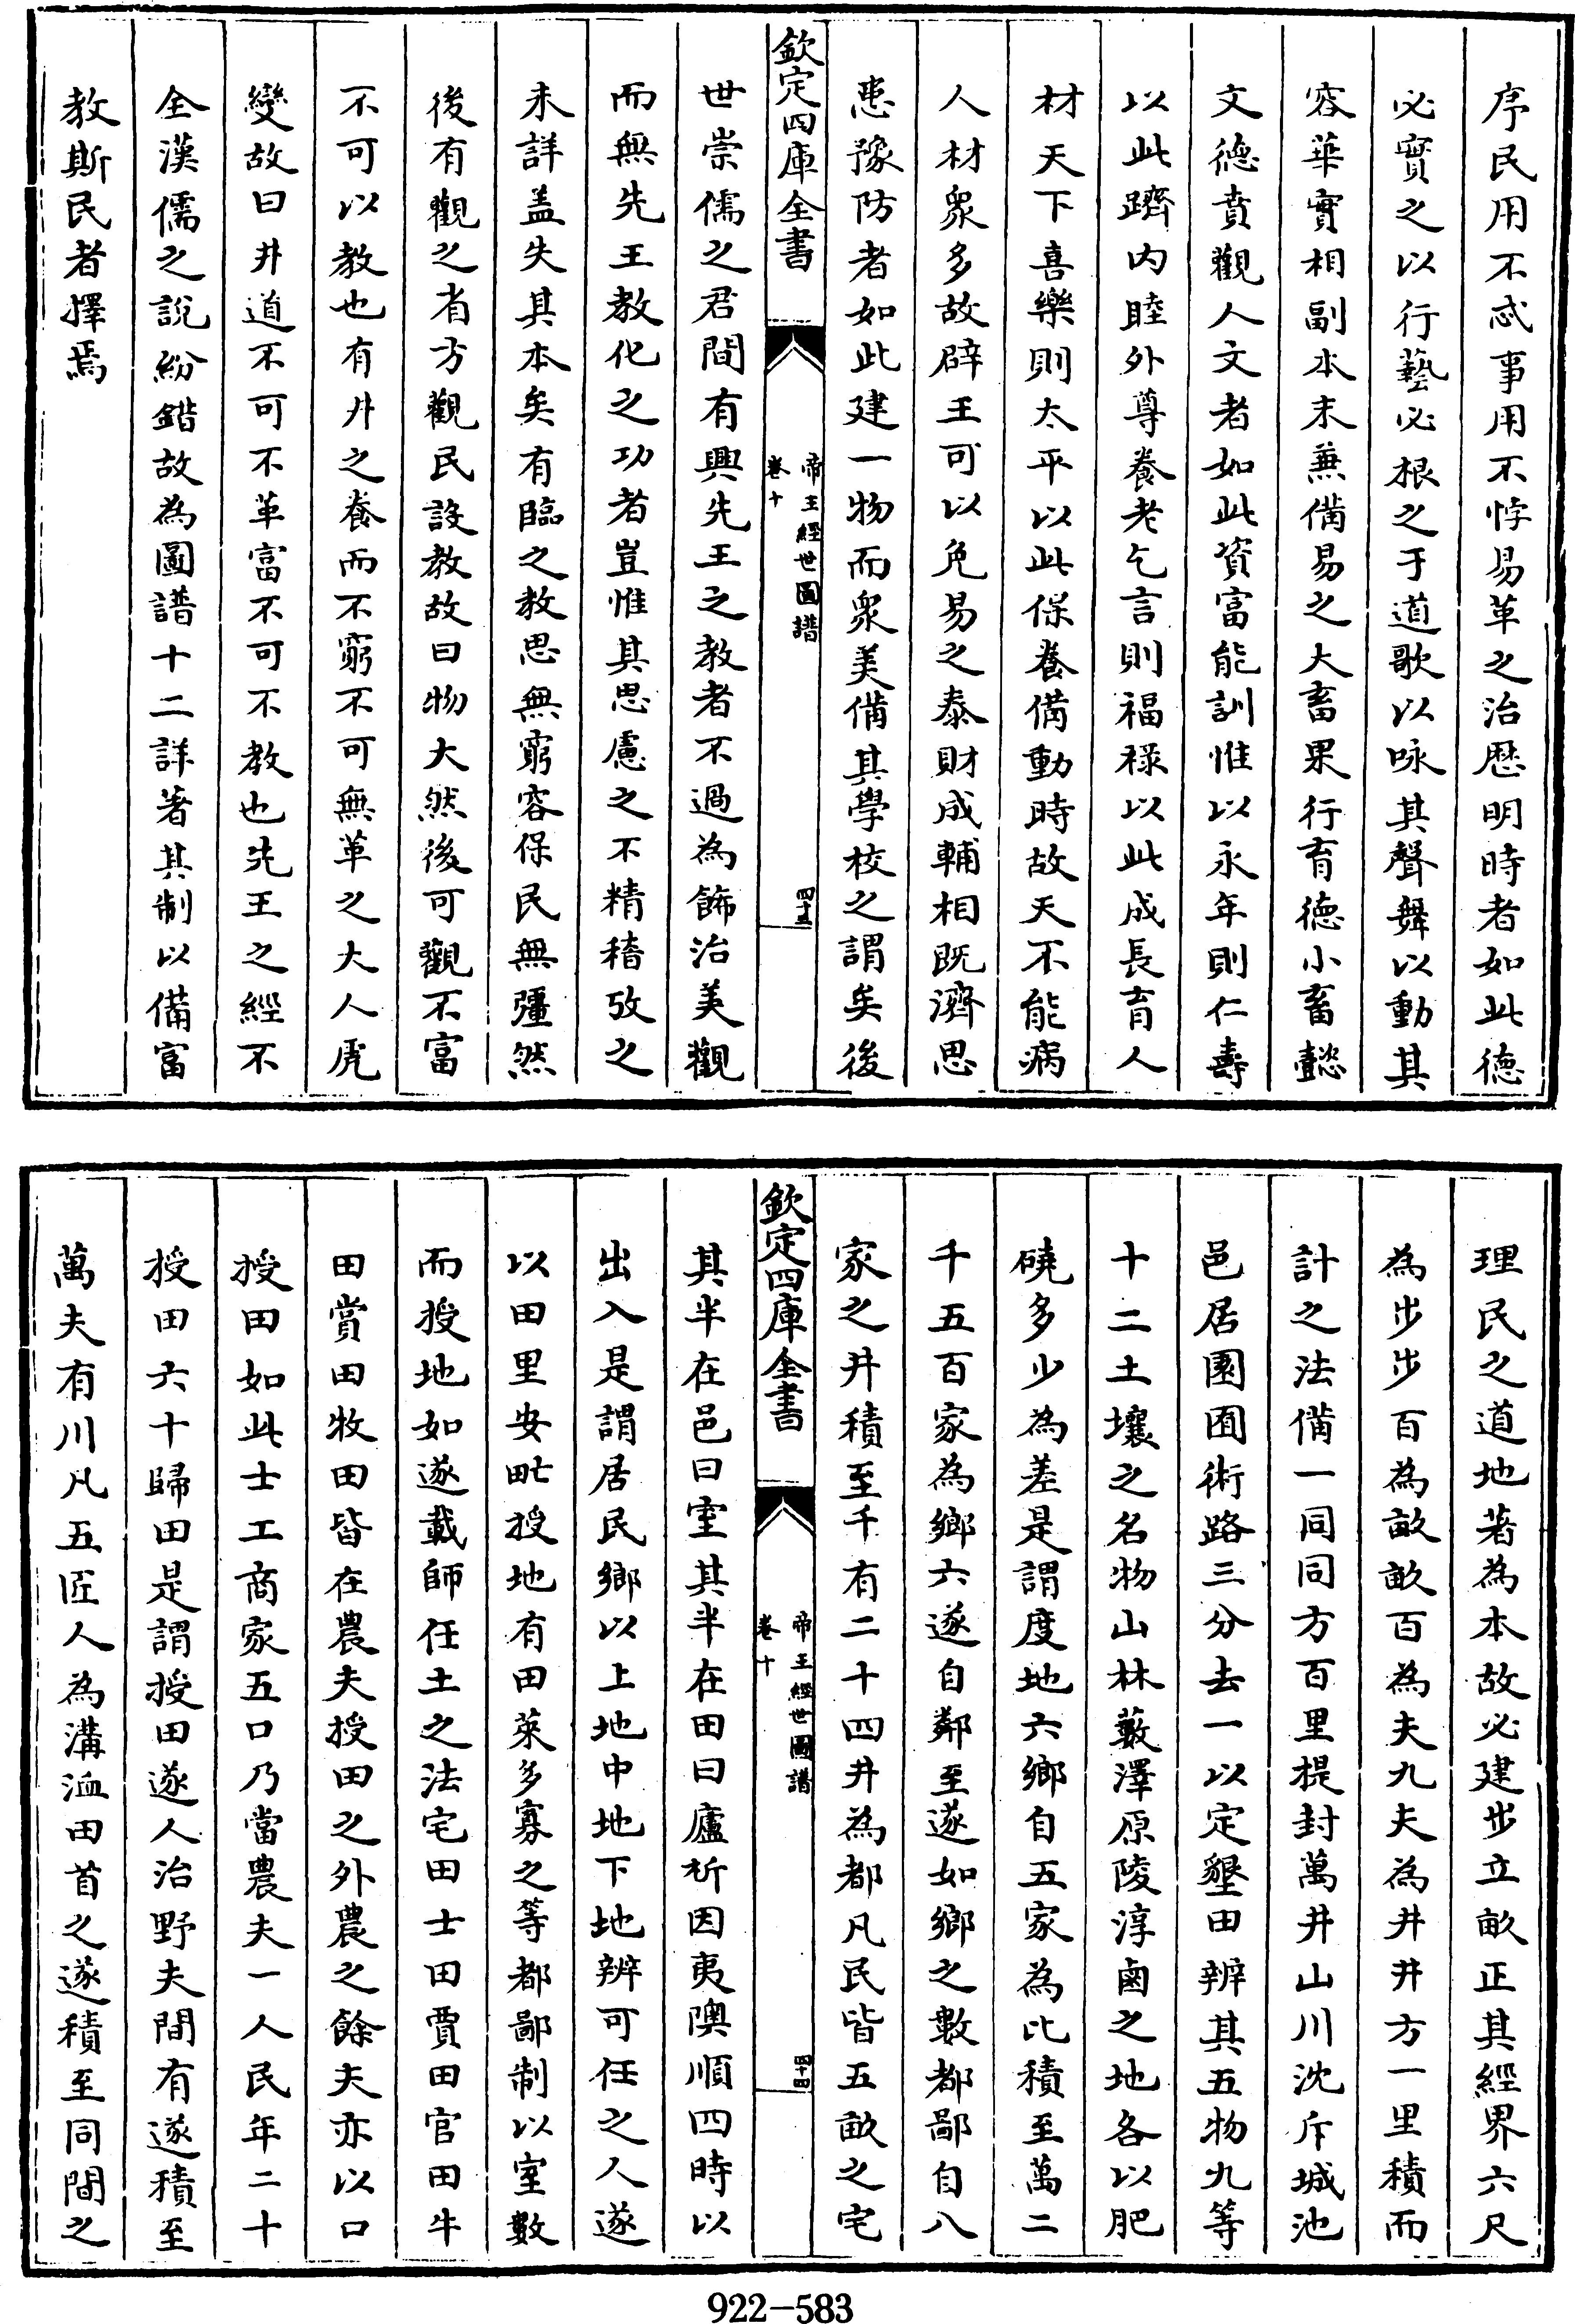 序民用不忒事用不悖易革之治歴明時者如此德
必實之以行藝必根之于道歌以咏其聲舞以動其
容華實相副本末兼備易之大畜果行育德小畜懿
文德賁觀人文者如此資富能訓惟以永年則仁壽
以此躋内睦外尊養老乞言則福禄以此成長育人
材天下喜樂則太平以此保養備動時故天不能病
人材衆多故辟王可以免易之泰財成輔相既濟思
患豫防者如此建一物而衆美備其學校之謂矣後
欽定四庫全書
帝王經世圖譜
卷十
四十五
世崇儒之君間有興先王之教者不過為飾治美觀
而無先王教化之功者豈惟其思慮之不精稽攷之
未詳盖失其本矣有臨之教思無窮容保民無疆然
後有觀之省方觀民設教故曰物大然後可觀不富
不可以教也有井之養而不窮不可無革之大人虎
變故曰井道不可不革富不可不教也先王之經不
全漢儒之說紛錯故為圖譜十二詳著其制以備富
教斯民者擇焉
理民之道地著為本故必建步立畝正其經界六尺
為步步百為畝畝百為夫九夫為井井方一里積而
計之法備一同同方百里提封萬井山川沈斥城池
邑居園囿術路三分去一以定墾田辨其五物九等
十二土壤之名物山林藪澤原陵淳鹵之地各以肥
磽多少為差是謂度地六鄉自五家為比積至萬二
千五百家為鄉六遂自鄰至遂如鄉之數都鄙自八
家之井積至千有二十四井為都凡民皆五畝之宅
欽定四庫全書
帝王經世圖譜
卷十
四十四
其半在邑曰室其半在田曰廬析因夷隩順四時以
出入是謂居民鄉以上地中地下地辨可任之人遂
以田里安甿授地有田萊多寡之等都鄙制以室數
而授地如遂載師任土之法宅田士田賈田官田牛
田賞田牧田皆在農夫授田之外農之餘夫亦以口
授田如此士工商家五口乃當農夫一人民年二十
授田六十歸田是謂授田遂人治野夫間有遂積至
萬夫有川凡五匠人為溝洫田首之遂積至同間之
922-583